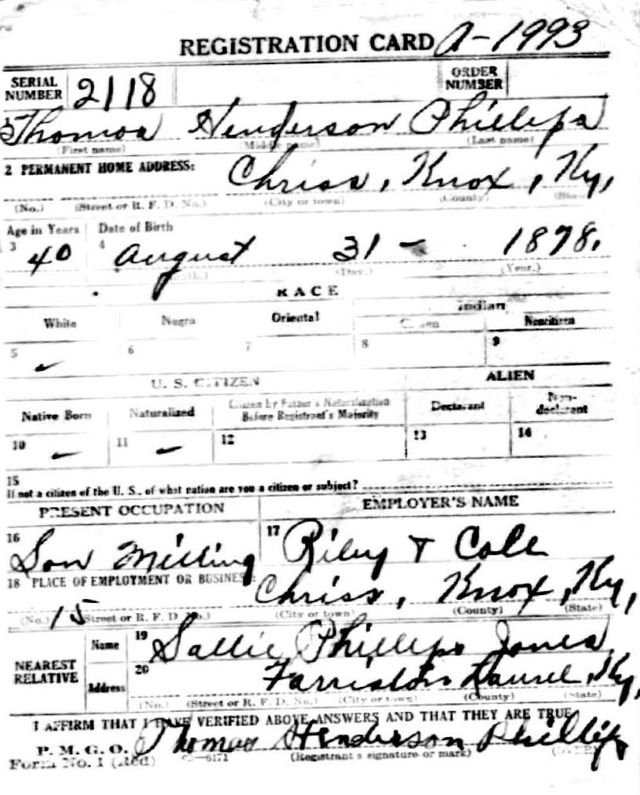 REGISTRATION CARD A-1993
SERIAL NUMBER 2118 ORDER NUMBER
Thomas Henderson Phillips
(First name) (Middle name) (Last name)
2 PERMANENT HOME ADDRESS: Chriss, Knox, Ky,
(No.) (Street or R. F. D. No.) (City or town) (County) (State)
Age in Years Date of Birth
3 40 4 August 31 - 1878.
(Day.) (Year.)
RACE
White Negro Oriental Indian
Citizen Noncitizen
5 6 7 8 9
U. S. CITIZEN ALIEN
Native Born Naturalized Citizen by Father's Naturalization Before Registrant's Majority Declarant Non-declarant
10 11 12 13 14
15
If not a citizen of the U. S., of what nation are you a citizen or subject?
PRESENT OCCUPATION EMPLOYER'S NAME
16 Milling 17 Riley & Cole
18 PLACE OF EMPLOYMENT OR BUSINESS: Chriss, Knox, Ky,
(No.) 15 (Street or R. F. D. No.) (City or town) (County) (State)
NEAREST RELATIVE Name 19 Sallie Phillips Jones
Address 20 Farriston Laurel, Ky,
(No.) (Street or R. F. D. No.) (City or town) (County) (State)
I AFFIRM THAT I HAVE VERIFIED ABOVE ANSWERS AND THAT THEY ARE TRUE
P. M. G. O. Thomas Henderson Phillips
Form No. 1 (Red) (Registrant's signature or mark) (OVER)